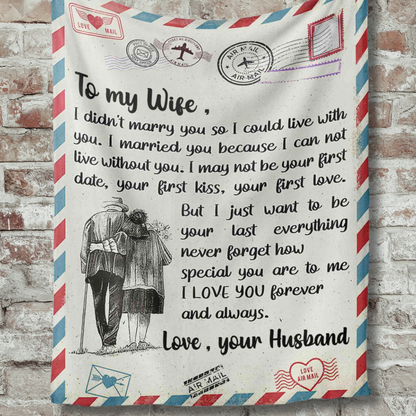 LOVE MAIL
AIR MAIL
AIR-MAIL
To my Wife ,
I didn't marry you so I could live with
you. I married you because I can not
live without you. I may not be your first
date, your first kiss, your first love.
But I just want to be
your last everything
never forget how
special you are to me
I LOVE YOU forever
and always.
Love , your Husband
AIR-MAIL
LOVE
AIR MAIL